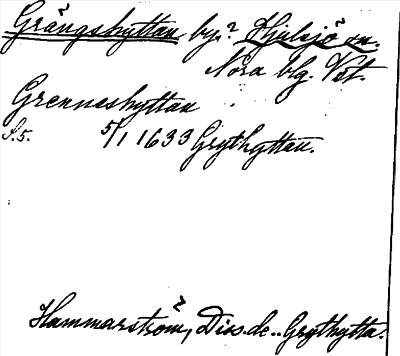 Grängshyttan by.? Hjulsjö sn.
Nora bg. Vst.
Grennsshyttan
S.5. 5/1 1633 Grythyttan.
Hammarström, Diss. de.. Grythytta.